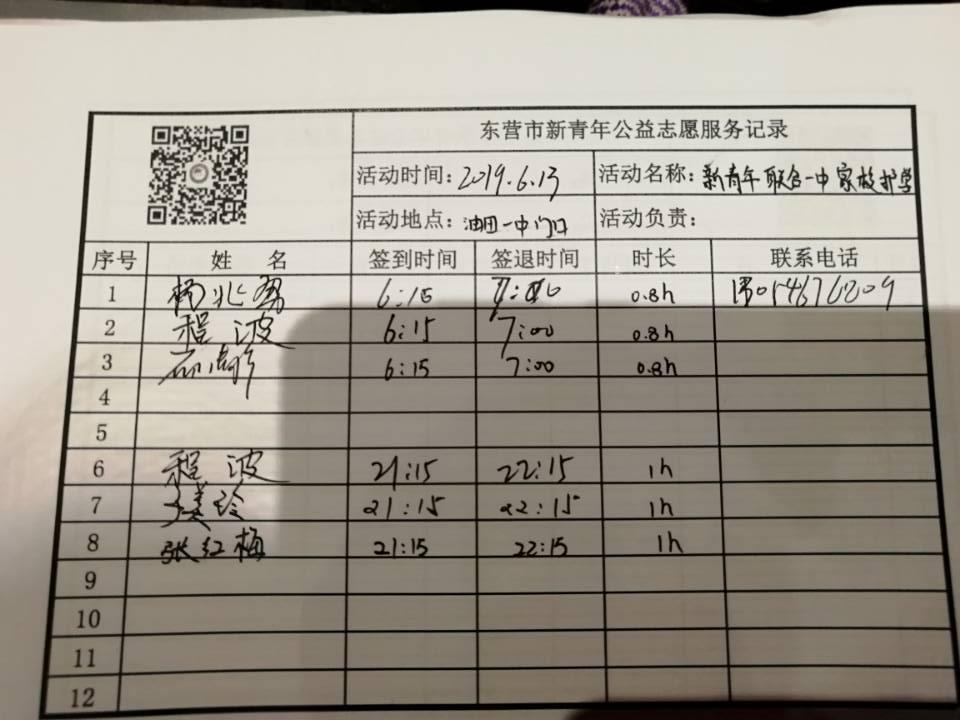 东营市新青年公益志愿服务记录
活动时间：2019.6.13 活动名称：新青年联合一中家校护学
活动地点：油田一中门口 活动负责：
序号 姓 名 签到时间 签退时间 时长 联系电话
1 杨兆 6:15 7:00 0.8h
2 程波 6:15 7:00 0.8h
3 6:15 7:00 0.8h
4
5
6 程波 21:15 22:15 1h
7 玲 21:15 22:15 1h
8 张红梅 21:15 22:15 1h
9
10
11
12